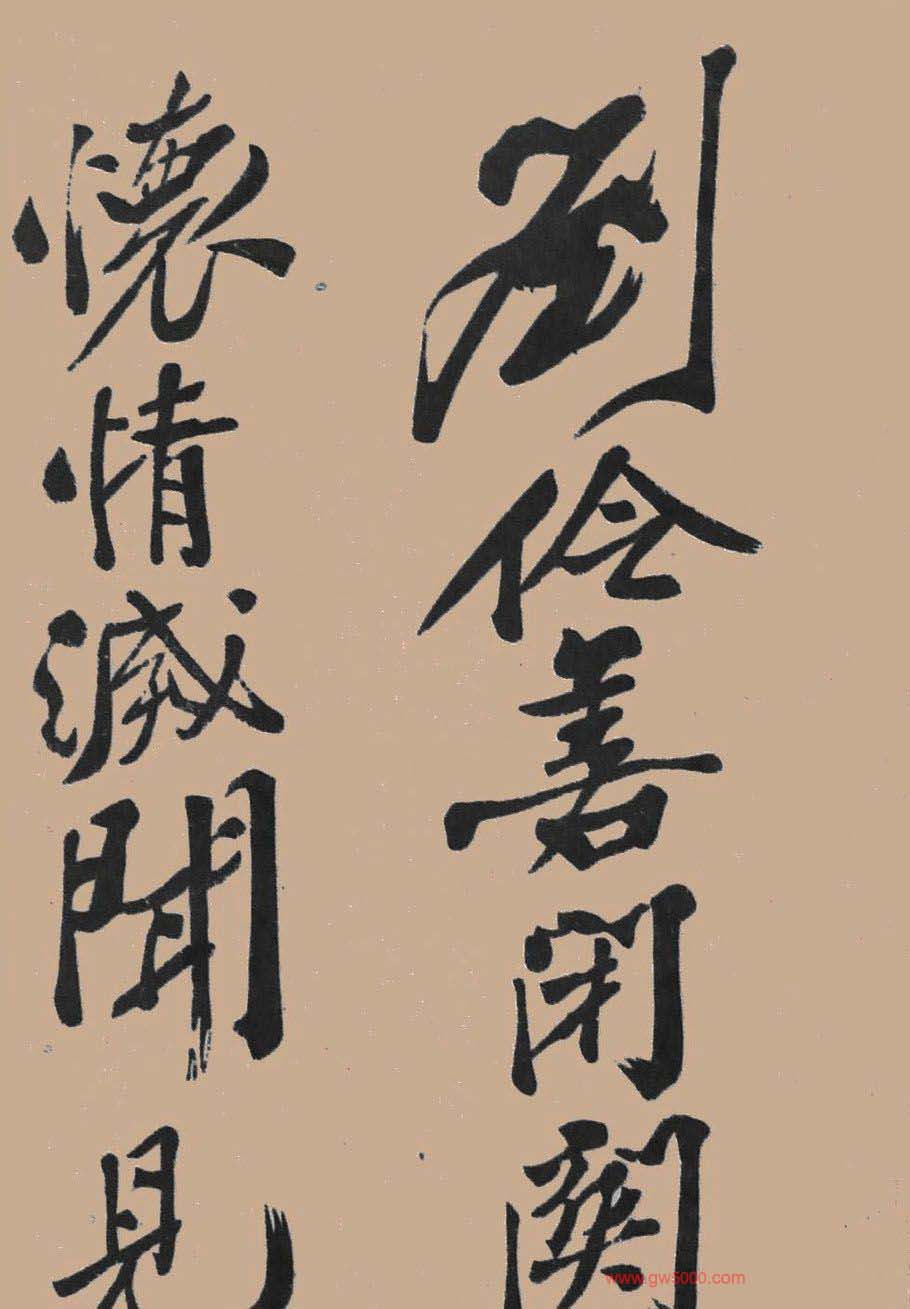 劉伶善閉關
懷情滅聞見
www.gw5000.com